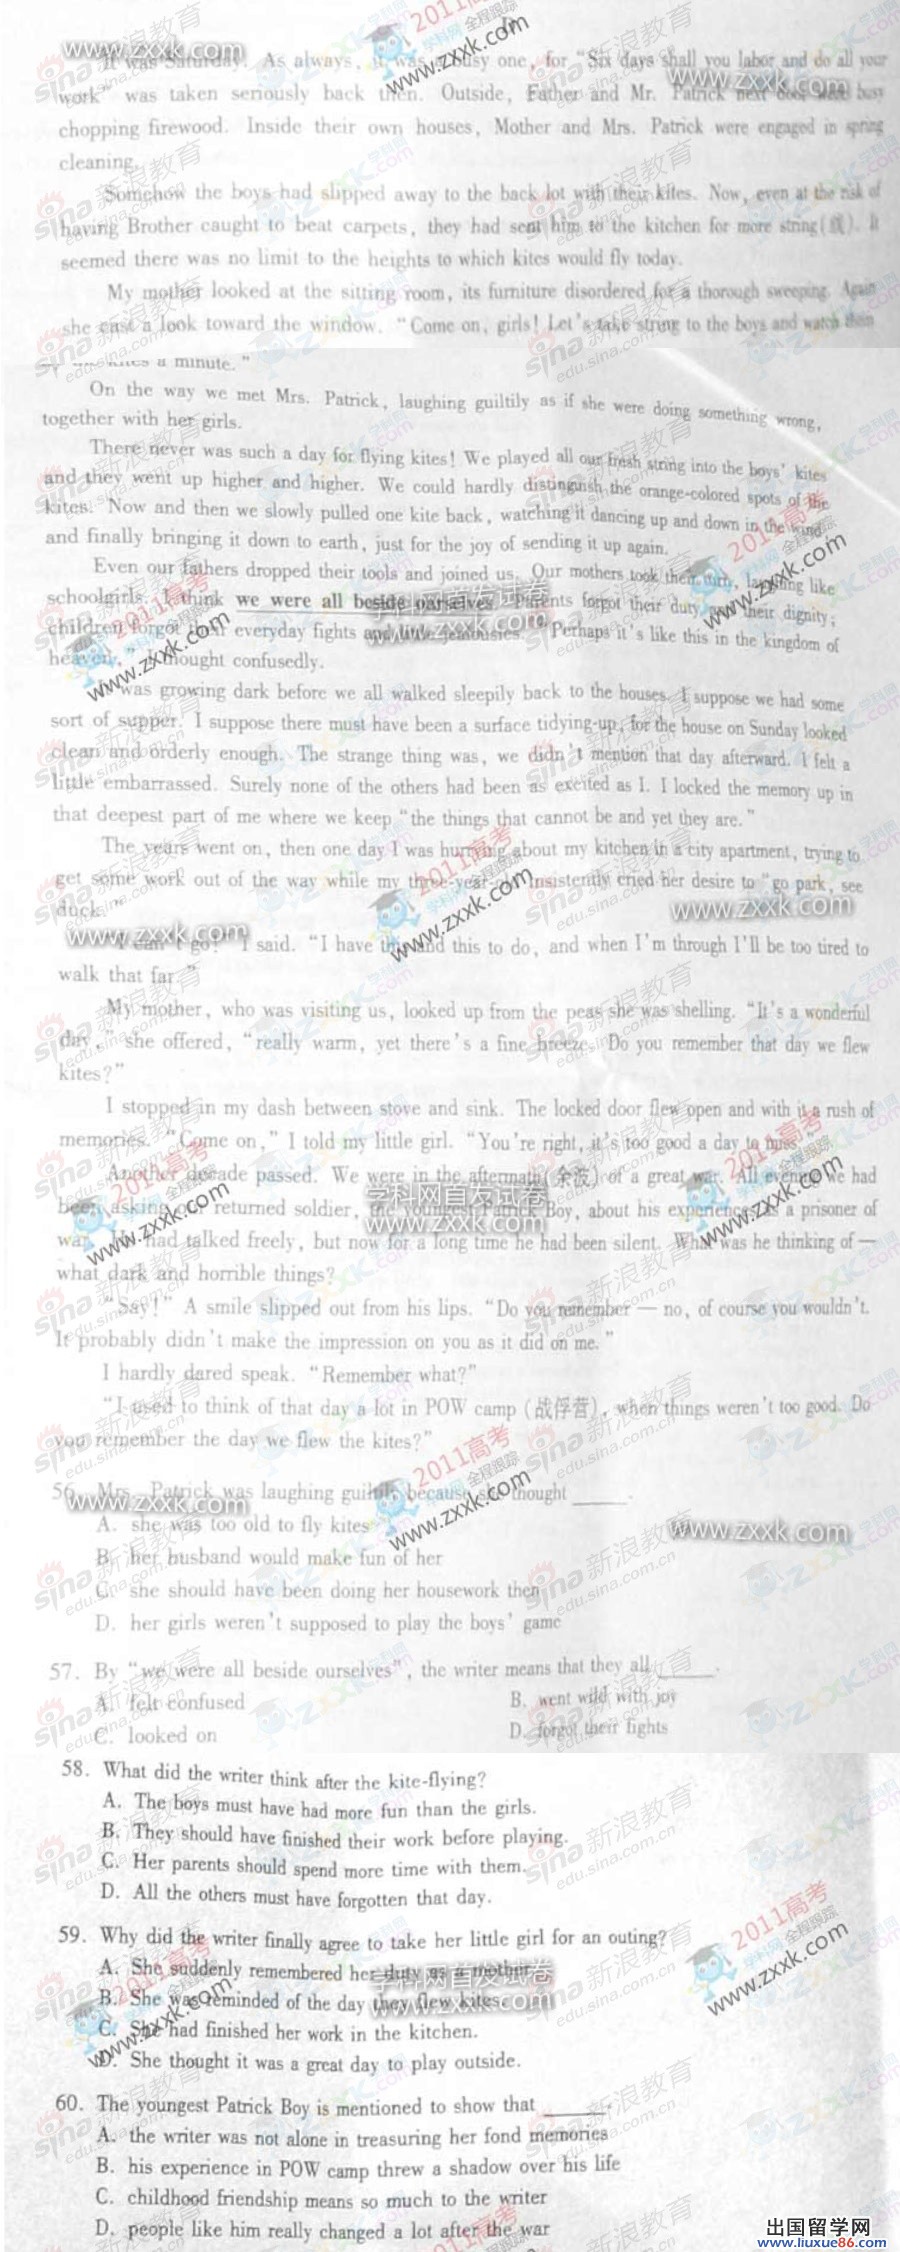 D
It was Saturday. As always, it was a busy one, for "Six days shall you labor and do all your
work" was taken seriously back then. Outside, Father and Mr. Patrick next door were busy
chopping firewood. Inside their own houses, Mother and Mrs. Patrick were engaged in spring
cleaning.
Somehow the boys had slipped away to the back lot with their kites. Now, even at the risk of
having Brother caught to beat carpets, they had sent him to the kitchen for more string(线). It
seemed there was no limit to the heights to which kites would fly today.
My mother looked at the sitting room, its furniture disordered for a thorough sweeping. Again
she cast a look toward the window. "Come on, girls! Let's take string to the boys and watch them
a minute."
On the way we met Mrs. Patrick, laughing guiltily as if she were doing something wrong,
together with her girls.
There never was such a day for flying kites! We played all our fresh string into the boys' kites
and they went up higher and higher. We could hardly distinguish the orange-colored spots of the
kites. Now and then we slowly pulled one kite back, watching it dancing up and down in the wind
and finally bringing it down to earth, just for the joy of sending it up again.
Even our fathers dropped their tools and joined us. Our mothers took their turn, laughing like
schoolgirls. I think we were all beside ourselves. Parents forgot their duty and their dignity;
children forgot their everyday fights and little jealousies. "Perhaps it's like this in the kingdom of
heaven," I thought confusedly.
It was growing dark before we all walked sleepily back to the houses. I suppose we had some
sort of supper. I suppose there must have been a surface tidying-up, for the house on Sunday looked
clean and orderly enough. The strange thing was, we didn't mention that day afterward. I felt a
little embarrassed. Surely none of the others had been as excited as I. I locked the memory up in
that deepest part of me where we keep "the things that cannot be and yet they are."
The years went on, then one day I was hurrying about my kitchen in a city apartment, trying to
get some work out of the way while my three-year-old insistently cried her desire to "go park, see
duck."
"I can't go!" I said. "I have this and this to do, and when I'm through I'll be too tired to
walk that far."
My mother, who was visiting us, looked up from the peas she was shelling. "It's a wonderful
day," she offered, "really warm, yet there's a fine breeze. Do you remember that day we flew
kites?"
I stopped in my dash between stove and sink. The locked door flew open and with it a rush of
memories. "Come on," I told my little girl. "You're right, it's too good a day to miss."
Another decade passed. We were in the aftermath(余波) of a great war. All evening we had
been asking our returned soldier, the youngest Patrick Boy, about his experiences as a prisoner of
war. He had talked freely, but now for a long time he had been silent. What was he thinking of —
what dark and horrible things?
"Say!" A smile slipped out from his lips. "Do you remember — no, of course you wouldn't.
It probably didn't make the impression on you as it did on me."
I hardly dared speak. "Remember what?"
"I used to think of that day a lot in POW camp (战俘营), when things weren't too good. Do
you remember the day we flew the kites?"
56. Mrs. Patrick was laughing guiltily because she thought ____.
A. she was too old to fly kites
B. her husband would make fun of her
C. she should have been doing her housework then
D. her girls weren't supposed to play the boys' game
57. By "we were all beside ourselves", the writer means that they all ____.
A. felt confused B. went wild with joy
C. looked on D. forgot their fights
58. What did the writer think after the kite-flying?
A. The boys must have had more fun than the girls.
B. They should have finished their work before playing.
C. Her parents should spend more time with them.
D. All the others must have forgotten that day.
59. Why did the writer finally agree to take her little girl for an outing?
A. She suddenly remembered her duty as a mother.
B. She was reminded of the day they flew kites.
C. She had finished her work in the kitchen.
D. She thought it was a great day to play outside.
60. The youngest Patrick Boy is mentioned to show that ____.
A. the writer was not alone in treasuring her fond memories
B. his experience in POW camp threw a shadow over his life
C. childhood friendship means so much to the writer
D. people like him really changed a lot after the war
出国留学网
www.liuxue86.com